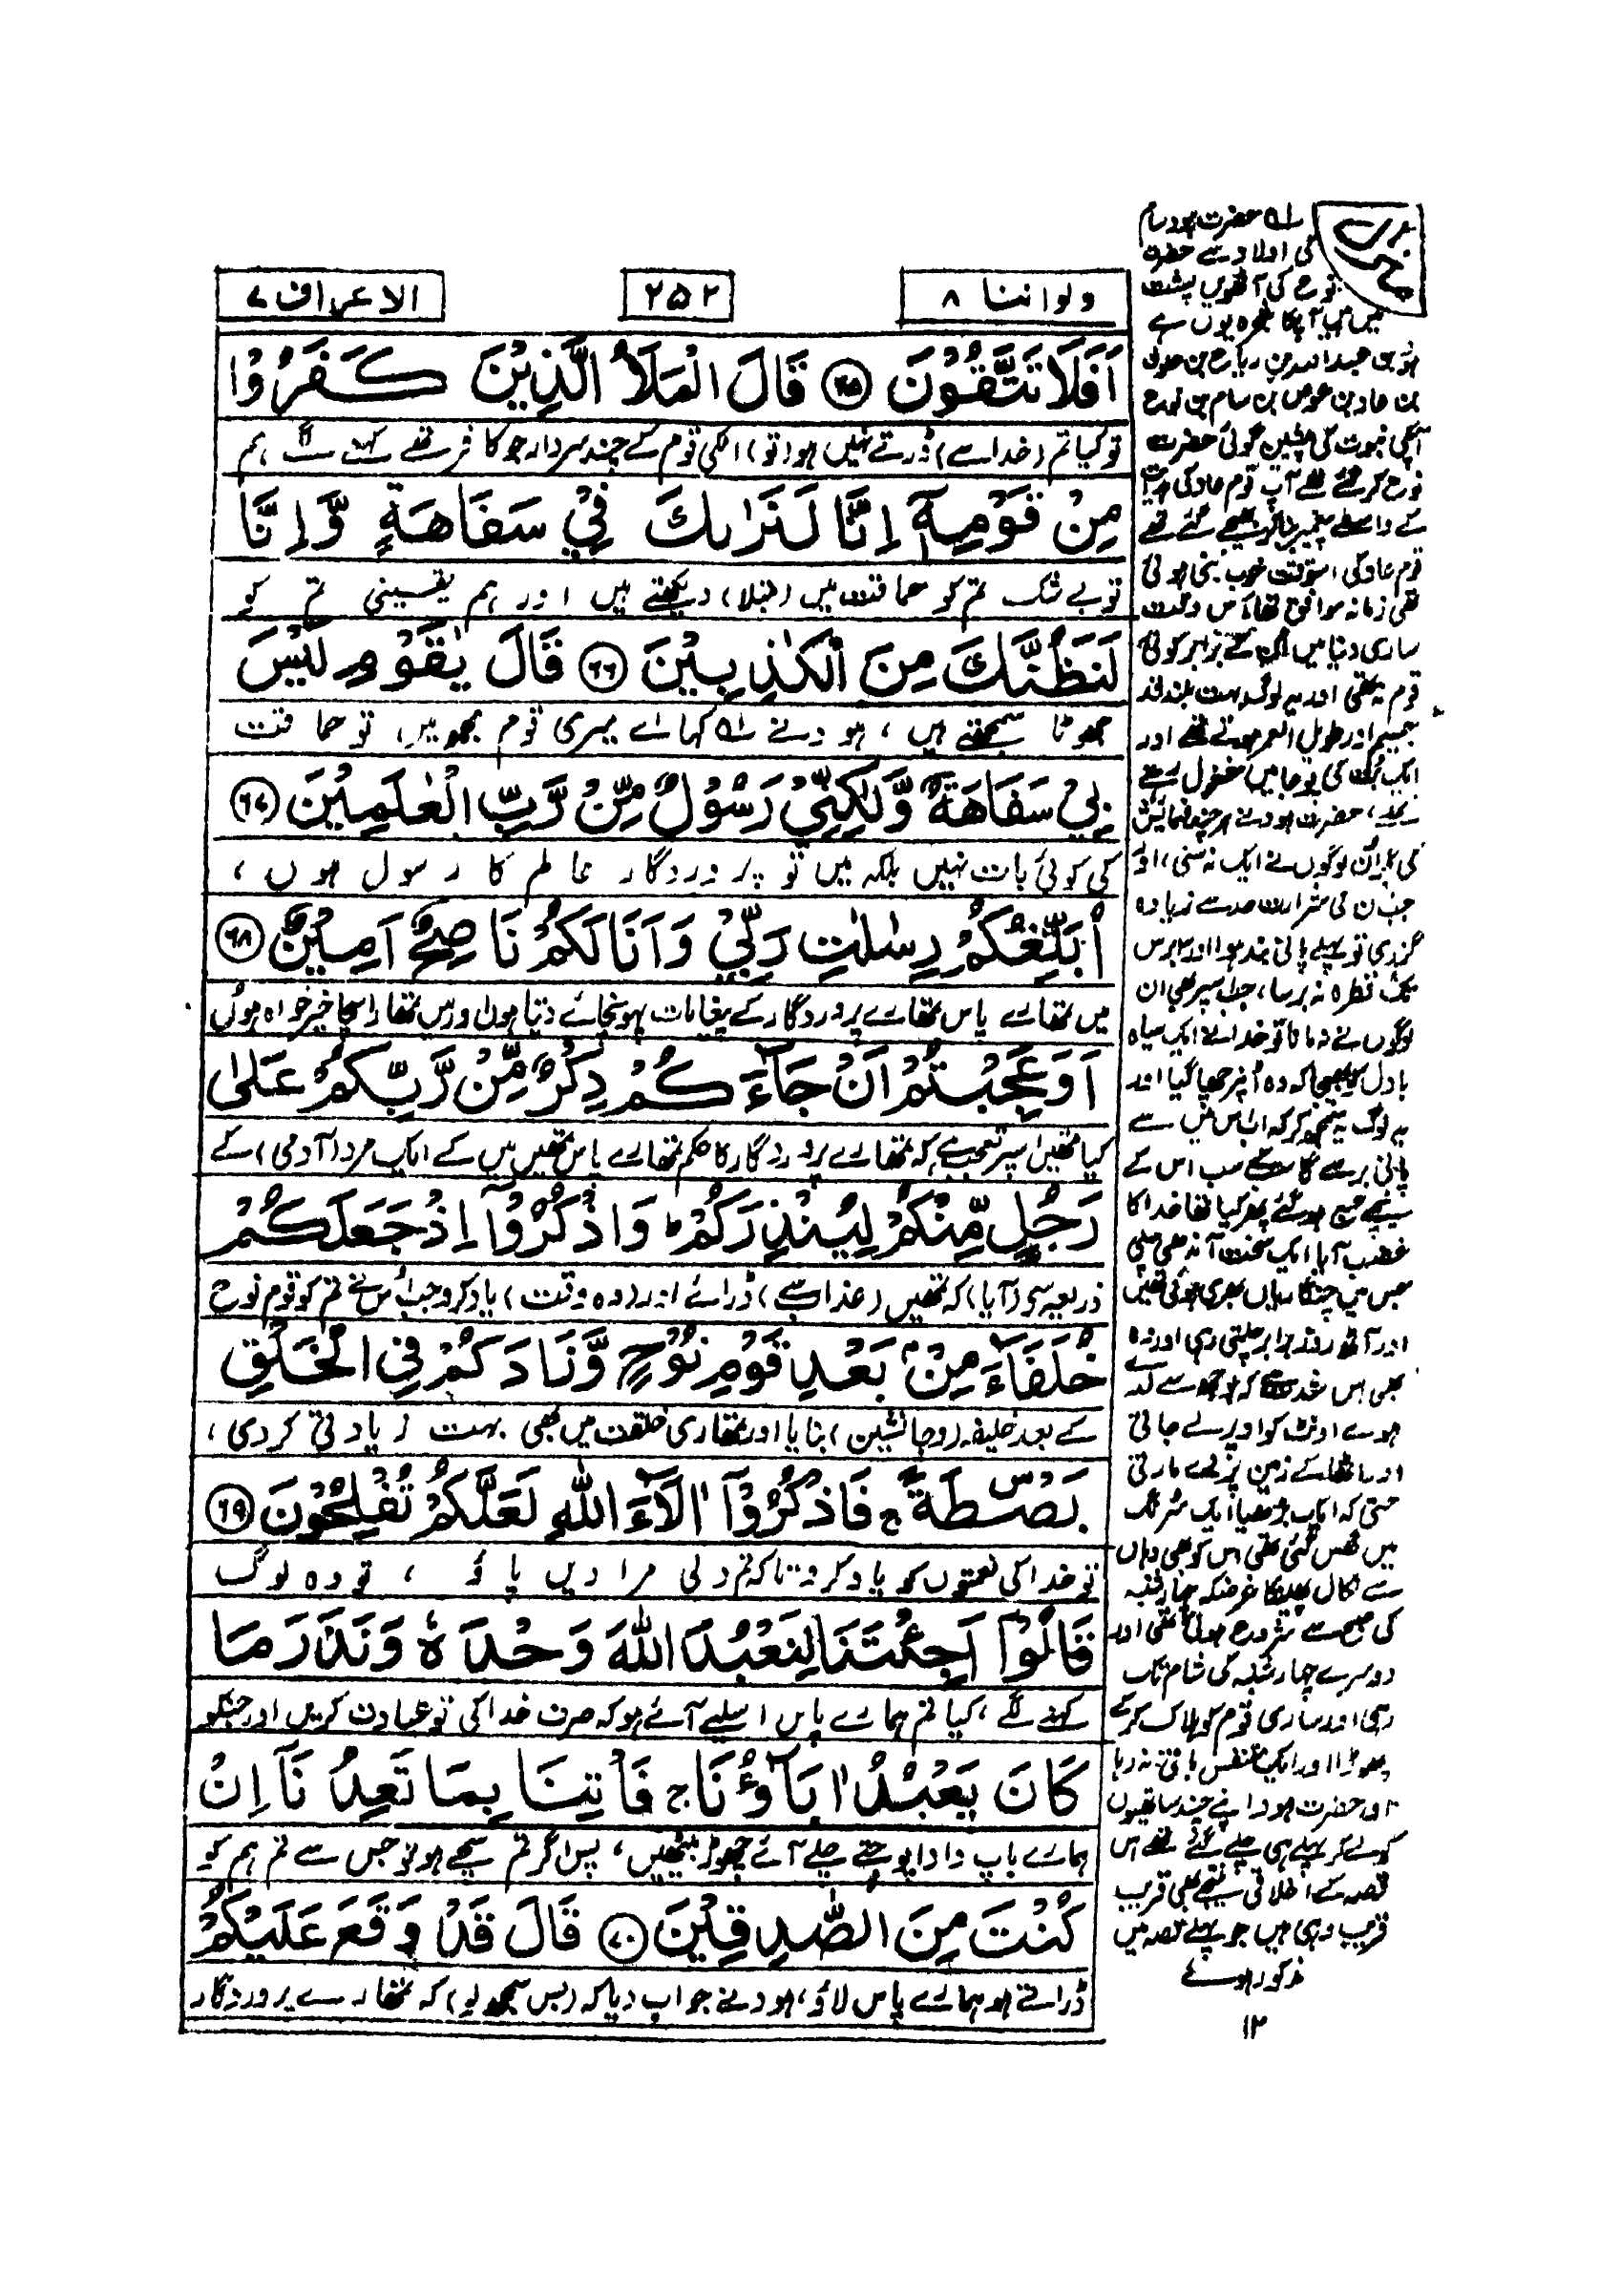 ولو اننا ۸
۲۵۲
الاعراف ۷
اَفَلَا تَتَّقُوْنَ ۶۵ قَالَ الْمَلَاُ الَّذِيْنَ كَفَرُوْا
تو کیا تم (خدا سے) ڈرتے نہیں ہو (تو) انکی قوم کے چند سردار جو کافر تھے کہنے لگے ہم
مِنْ قَوْمِهٖٓ اِنَّا لَنَرٰىكَ فِيْ سَفَاهَةٍ وَّاِنَّا
تو بے شک تم کو حماقت میں (مبتلا) دیکھتے ہیں اور ہم یقینی تم کو
لَنَظُنُّكَ مِنَ الْكٰذِبِيْنَ ۶۶ قَالَ يٰقَوْمِ لَيْسَ
جھوٹا سمجھتے ہیں، ہود نے کہا اے میری قوم مجھ میں تو حماقت
بِيْ سَفَاهَةٌ وَّلٰكِنِّيْ رَسُوْلٌ مِّنْ رَّبِّ الْعٰلَمِيْنَ ۶۷
کی کوئی بات نہیں بلکہ میں تو پروردگار عالم کا رسول ہوں،
اُبَلِّغُكُمْ رِسٰلٰتِ رَبِّيْ وَاَنَا لَكُمْ نَاصِحٌ اَمِيْنٌ ۶۸
میں تمھارے پاس تمھارے پروردگار کے پیغامات پہونچائے دیتا ہوں اور میں تمھارا سچا خیر خواہ ہوں
اَوَعَجِبْتُمْ اَنْ جَآءَكُمْ ذِكْرٌ مِّنْ رَّبِّكُمْ عَلٰى
کیا تمھیں اسپر تعجب ہے کہ تمھارے پروردگار کا حکم تمھارے پاس تمھیں میں کے ایک مرد (آدمی) کے
رَجُلٍ مِّنْكُمْ لِيُنْذِرَكُمْ ط وَاذْكُرُوْٓا اِذْ جَعَلَكُمْ
ذریعہ سے (آیا) کہ تمھیں (عذاب سے) ڈرائے اور (وہ وقت) یاد کرو جب اُس نے تم کو قوم نوح
خُلَفَآءَ مِنْۢ بَعْدِ قَوْمِ نُوْحٍ وَّزَادَكُمْ فِي الْخَلْقِ
کے بعد خلیفہ (و جانشین) بنایا اور تمھاری خلقت میں بھی بہت زیادتی کر دی،
بَصْۜطَةً ج فَاذْكُرُوْٓا اٰلَآءَ اللّٰهِ لَعَلَّكُمْ تُفْلِحُوْنَ ۶۹
تو خدا کی نعمتوں کو یاد کرو تاکہ تم دلی مرادیں پاؤ، تو وہ لوگ
قَالُوْٓا اَجِئْتَنَا لِنَعْبُدَ اللّٰهَ وَحْدَهٗ وَنَذَرَ مَا
کہنے لگے، کیا تم ہمارے پاس اسلیے آئے ہو کہ صرف خدا کی تو عبادت کریں اور جنکو
كَانَ يَعْبُدُ اٰبَآؤُنَا ج فَاْتِنَا بِمَا تَعِدُنَآ اِنْ
ہمارے باپ دادا پوجتے چلے آئے چھوڑ بیٹھیں، پس اگر تم سچے ہو تو جس سے تم ہم کو
كُنْتَ مِنَ الصّٰدِقِيْنَ ۷۰ قَالَ قَدْ وَقَعَ عَلَيْكُمْ
ڈراتے ہو ہمارے پاس لاؤ، ہود نے جواب دیا کہ (بس سمجھ لو) کہ تمھارے پروردگار
حضرت ہود سام
کی اولاد سے حضرت
نوح کی آٹھویں پشت
میں ہیں آپکا شجرہ یوں ہے
ہود بن عبداللہ بن رباح بن
بن عاد بن عوص بن سام بن نوح
آپکی نبوت کی پیشین گوئی حضرت
نوح کر گئے تھے آپ قوم عاد کی ہدایت
کے واسطے پیغمبر بناکر بھیجے گئے تھے
قوم عاد کی اسوقت خوب بنی ہوئی
تھی زمانہ موافق تھا اس وقت
ساری دنیا میں ان کے برابر کوئی
قوم نہ تھی اور یہ لوگ بہت بلند قد
جسیم اور طویل العمر ہوتے تھے اور
ایک بُت کی پوجا میں مشغول رہتے
تھے، حضرت ہود نے ہر چند فہمایش
کی مگر ان لوگوں نے ایک نہ سنی، اور
جب ان کی شرارت حد سے زیادہ
گزری تو پہلے پانی بند ہوا اور ۳ برس
تک قطرہ نہ برسا، جب اسپر بھی ان
لوگوں نے نہ مانا تو خدا نے ایک سیاہ
بادل کو بھیجا کہ وہ اُنپر چھا گیا اور
یہ لوگ یہ سمجھ کر کہ اب اس میں سے
پانی برسے گا سب کے سب اس کے
نیچے جمع ہو گئے پھر کیا تھا خدا کا
غضب آیا ایک سخت آندھی چلی
جس میں چنگاریاں بھری ہوئی تھیں
اور آٹھ روز برابر چلتی رہی اور وہ
بھی اس شدت سے کہ لدے
ہوے اونٹ کو اوپر لے جاتی
اور اٹھا کے زمین پر دے مارتی
حتی کہ ایک بڑھیا ایک سُرنگ
میں گھس گئی تھی اس کو بھی وہاں
سے نکال پھینکا غرضکہ چہار شنبہ
کی صبح سے شروع ہوئی تھی اور
دوسرے چہار شنبہ کی شام تک
رہی اور ساری قوم کو ہلاک کرکے
چھوڑا اور ایک متنفس باقی نہ رہا
اور حضرت ہود اپنے چند ساتھیوں
کو لے کر پہلے ہی چلے گئے تھے اس
قصہ کے اخلاقی نتیجے بھی قریب
قریب وہی ہیں جو پہلے قصہ میں
مذکور ہوئے
۱۲